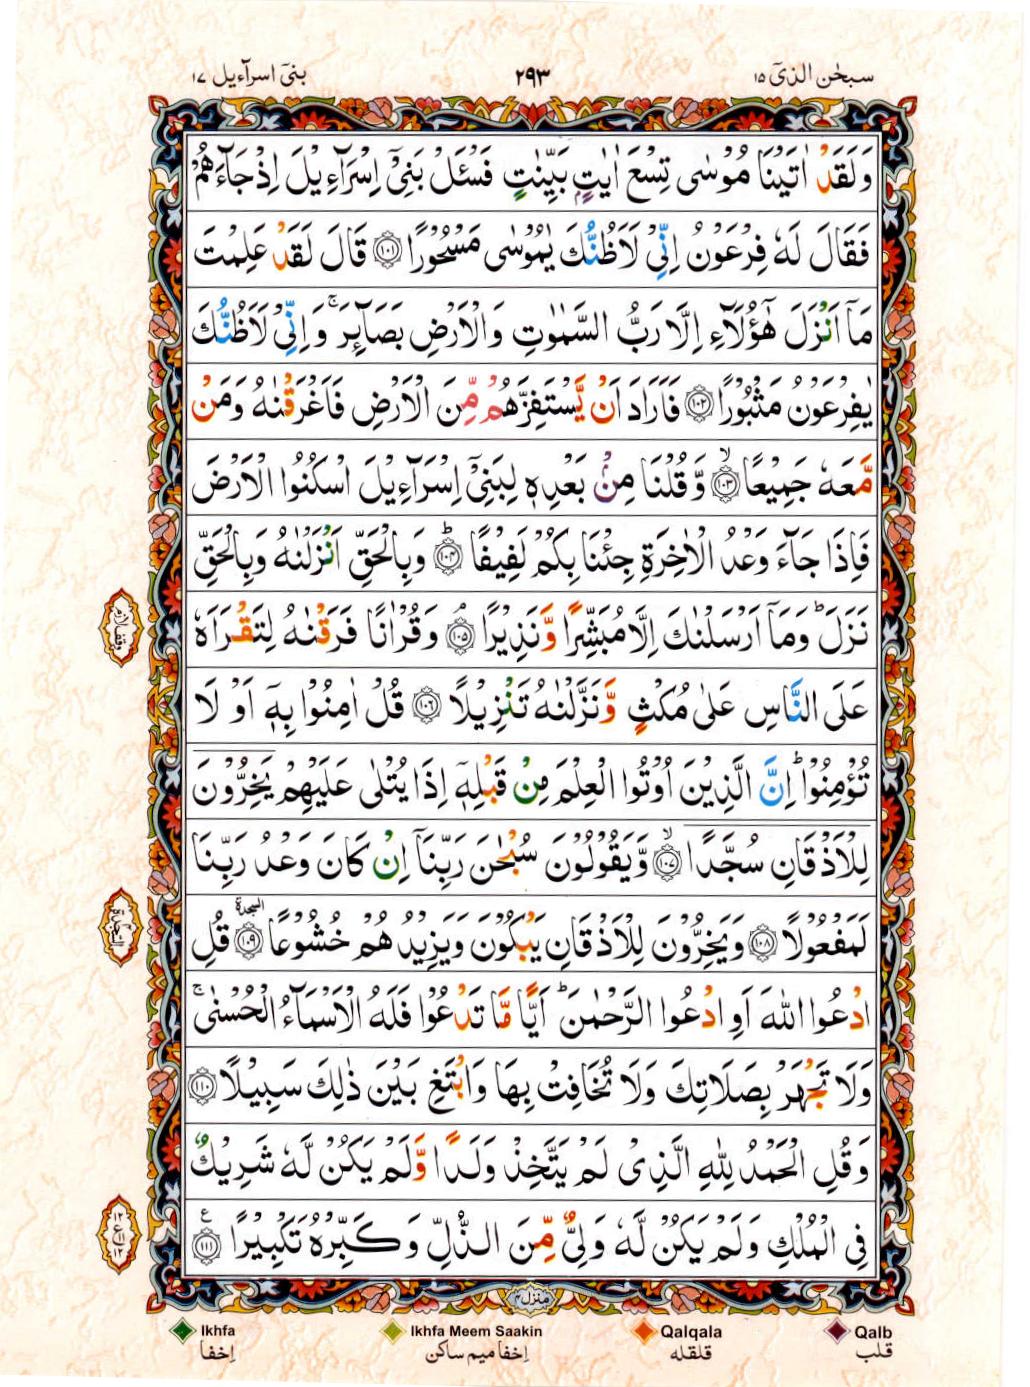 سبحٰن الذیٓ ١٥
٢٩٣
بنیٓ اسرآءیل ١٧
وَلَقَدْ اٰتَیْنَا مُوْسٰی تِسْعَ اٰیٰتٍۭ بَیِّنٰتٍ فَسْـَٔلْ بَنِیْۤ اِسْرَآءِیْلَ اِذْ جَآءَهُمْ
فَقَالَ لَهٗ فِرْعَوْنُ اِنِّیْ لَاَظُنُّكَ یٰمُوْسٰی مَسْحُوْرًا ﴿١٠١﴾ قَالَ لَقَدْ عَلِمْتَ
مَاۤ اَنْزَلَ هٰۤؤُلَآءِ اِلَّا رَبُّ السَّمٰوٰتِ وَالْاَرْضِ بَصَآئِرَ ۚ وَاِنِّیْ لَاَظُنُّكَ
یٰفِرْعَوْنُ مَثْبُوْرًا ﴿١٠٢﴾ فَاَرَادَ اَنْ یَّسْتَفِزَّهُمْ مِّنَ الْاَرْضِ فَاَغْرَقْنٰهُ وَمَنْ
مَّعَهٗ جَمِیْعًا ۙ﴿١٠٣﴾ وَّقُلْنَا مِنْۢ بَعْدِهٖ لِبَنِیْۤ اِسْرَآءِیْلَ اسْكُنُوا الْاَرْضَ
فَاِذَا جَآءَ وَعْدُ الْاٰخِرَةِ جِئْنَا بِكُمْ لَفِیْفًا ؕ﴿١٠٤﴾ وَبِالْحَقِّ اَنْزَلْنٰهُ وَبِالْحَقِّ
نَزَلَ ؕ وَمَاۤ اَرْسَلْنٰكَ اِلَّا مُبَشِّرًا وَّنَذِیْرًا ۘ﴿١٠٥﴾ وَقُرْاٰنًا فَرَقْنٰهُ لِتَقْرَاَهٗ
وقف لازم
عَلَی النَّاسِ عَلٰی مُكْثٍ وَّنَزَّلْنٰهُ تَنْزِیْلًا ﴿١٠٦﴾ قُلْ اٰمِنُوْا بِهٖۤ اَوْ لَا
تُؤْمِنُوْا ؕ اِنَّ الَّذِیْنَ اُوْتُوا الْعِلْمَ مِنْ قَبْلِهٖۤ اِذَا یُتْلٰی عَلَیْهِمْ یَخِرُّوْنَ
لِلْاَذْقَانِ سُجَّدًا ۙ﴿١٠٧﴾ وَّیَقُوْلُوْنَ سُبْحٰنَ رَبِّنَاۤ اِنْ كَانَ وَعْدُ رَبِّنَا
لَمَفْعُوْلًا ﴿١٠٨﴾ وَیَخِرُّوْنَ لِلْاَذْقَانِ یَبْكُوْنَ وَیَزِیْدُهُمْ خُشُوْعًا ﴿١٠٩﴾ السجدة قُلِ
السجدة
ادْعُوا اللّٰهَ اَوِ ادْعُوا الرَّحْمٰنَ ؕ اَیًّا مَّا تَدْعُوْا فَلَهُ الْاَسْمَآءُ الْحُسْنٰی ۚ
وَلَا تَجْهَرْ بِصَلَاتِكَ وَلَا تُخَافِتْ بِهَا وَابْتَغِ بَیْنَ ذٰلِكَ سَبِیْلًا ﴿١١٠﴾
وَقُلِ الْحَمْدُ لِلّٰهِ الَّذِیْ لَمْ یَتَّخِذْ وَلَدًا وَّلَمْ یَكُنْ لَّهٗ شَرِیْكٌ
فِی الْمُلْكِ وَلَمْ یَكُنْ لَّهٗ وَلِیٌّ مِّنَ الذُّلِّ وَكَبِّرْهُ تَكْبِیْرًا ﴿١١١﴾ ع
١٢ ع ١١ ١٢
منزل ٤
Ikhfa
اِخفا
Ikhfa Meem Saakin
اِخفا میم ساکن
Qalqala
قلقله
Qalb
قلب